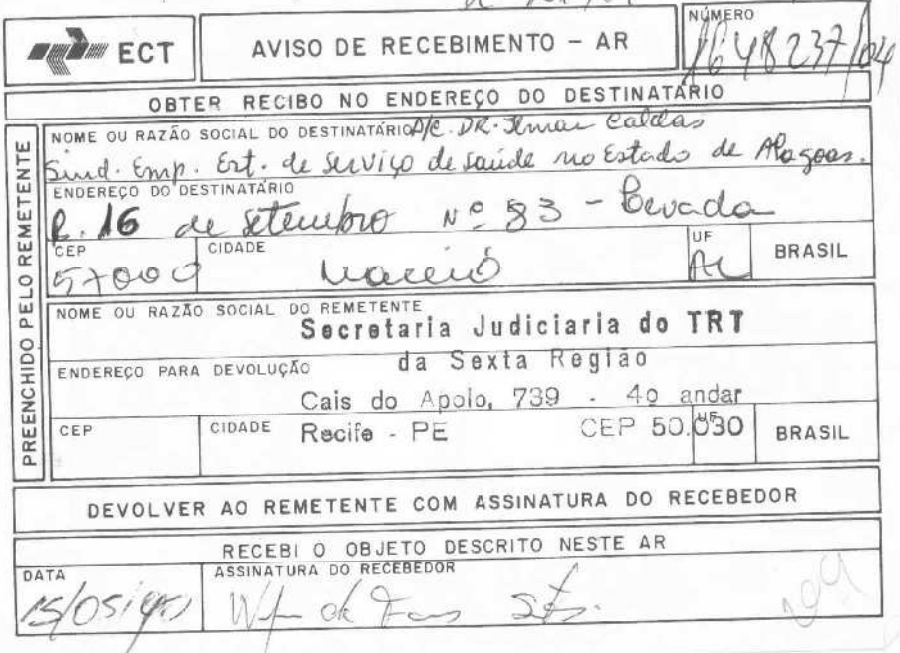 ECT
AVISO DE RECEBIMENTO - AR
NÚMERO
1648237/04
OBTER RECIBO NO ENDEREÇO DO DESTINATÁRIO
PREENCHIDO PELO REMETENTE
NOME OU RAZÃO SOCIAL DO DESTINATÁRIO A/C. DR. Ilmar Caldas
Sind. Emp. Est. de Serviço de saúde no Estado de Alagoas.
ENDEREÇO DO DESTINATÁRIO
R. 16 de setembro Nº 83 - Levada
CEP
57000
CIDADE
Maceió
UF
AL
BRASIL
NOME OU RAZÃO SOCIAL DO REMETENTE
Secretaria Judiciaria do TRT
da Sexta Região
ENDEREÇO PARA DEVOLUÇÃO
Cais do Apolo, 739 - 4º andar
CEP
CIDADE
Recife - PE
CEP 50.030
UF
BRASIL
DEVOLVER AO REMETENTE COM ASSINATURA DO RECEBEDOR
RECEBI O OBJETO DESCRITO NESTE AR
DATA
15/05/90
ASSINATURA DO RECEBEDOR